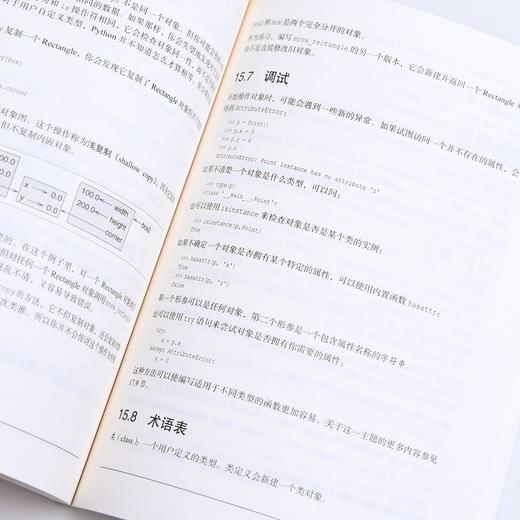 不是同一个对象，但你可能
和 is 操作符相同，它会检查对象同一性，而不是
于用户自定义类型，Python 并不知道怎么才算相等。
py(box)
复制一个 Rectangle，你会发现它复制了 Rectangle 对象
.corner
对象图。这个操作称为浅复制（shallow copy），因为它
但不复制内嵌对象。
0.0
0.0
x
0.0
y
0.0
100.0
width
200.0
height
corner
box2
要的。在这个例子里，对一个 Rectangle 对象
但对任何一个 Rectangle 对象调用 move_rectangle
混乱不清，又容易导致错误。
copy 的方法，它不但复制对象，还会复制
次类推。所以你并不会惊讶这个操作
box3 和 box 是两个完全分开的对象。
作为练习，编写 move_rectangle 的另一个版本，它会新建并返回一个 Rectangle
而不是直接修改旧对象。
15.7 调试
开始操作对象时，可能会遇到一些新的异常。如果试图访问一个并不存在的属性，会
得到 AttributeError：
>>> p = Point()
>>> p.x = 3
>>> p.y = 4
>>> p.z
AttributeError: Point instance has no attribute 'z'
如果不清楚一个对象是什么类型，可以问：
>>> type(p)
<class '__main__.Point'>
也可以使用 isinstance 来检查对象是否是某个类的实例：
>>> isinstance(p,Point)
True
如果不确定一个对象是否拥有某个特定的属性，可以使用内置函数 hasattr：
>>> hasattr(p, 'x')
True
>>> hasattr(p, 'z')
False
第一个形参可以是任何对象，第二个形参是一个包含属性名称的字符串。
也可以使用 try 语句来尝试对象是否拥有你需要的属性：
try:
x = p.x
except AttributeError:
x = 0
这种方法可以使编写适用于不同类型的函数更加容易。关于这一主题的更多内容参见
17.9 节。
15.8 术语表
类（class）：一个用户定义的类型。类定义会新建一个类对象。